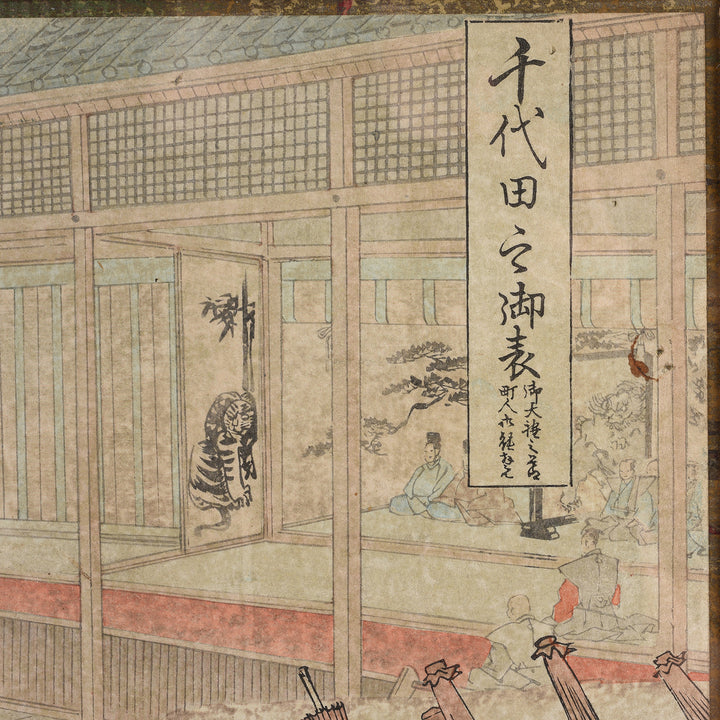 千代田之御表
御大禮之節
町人御能拝見